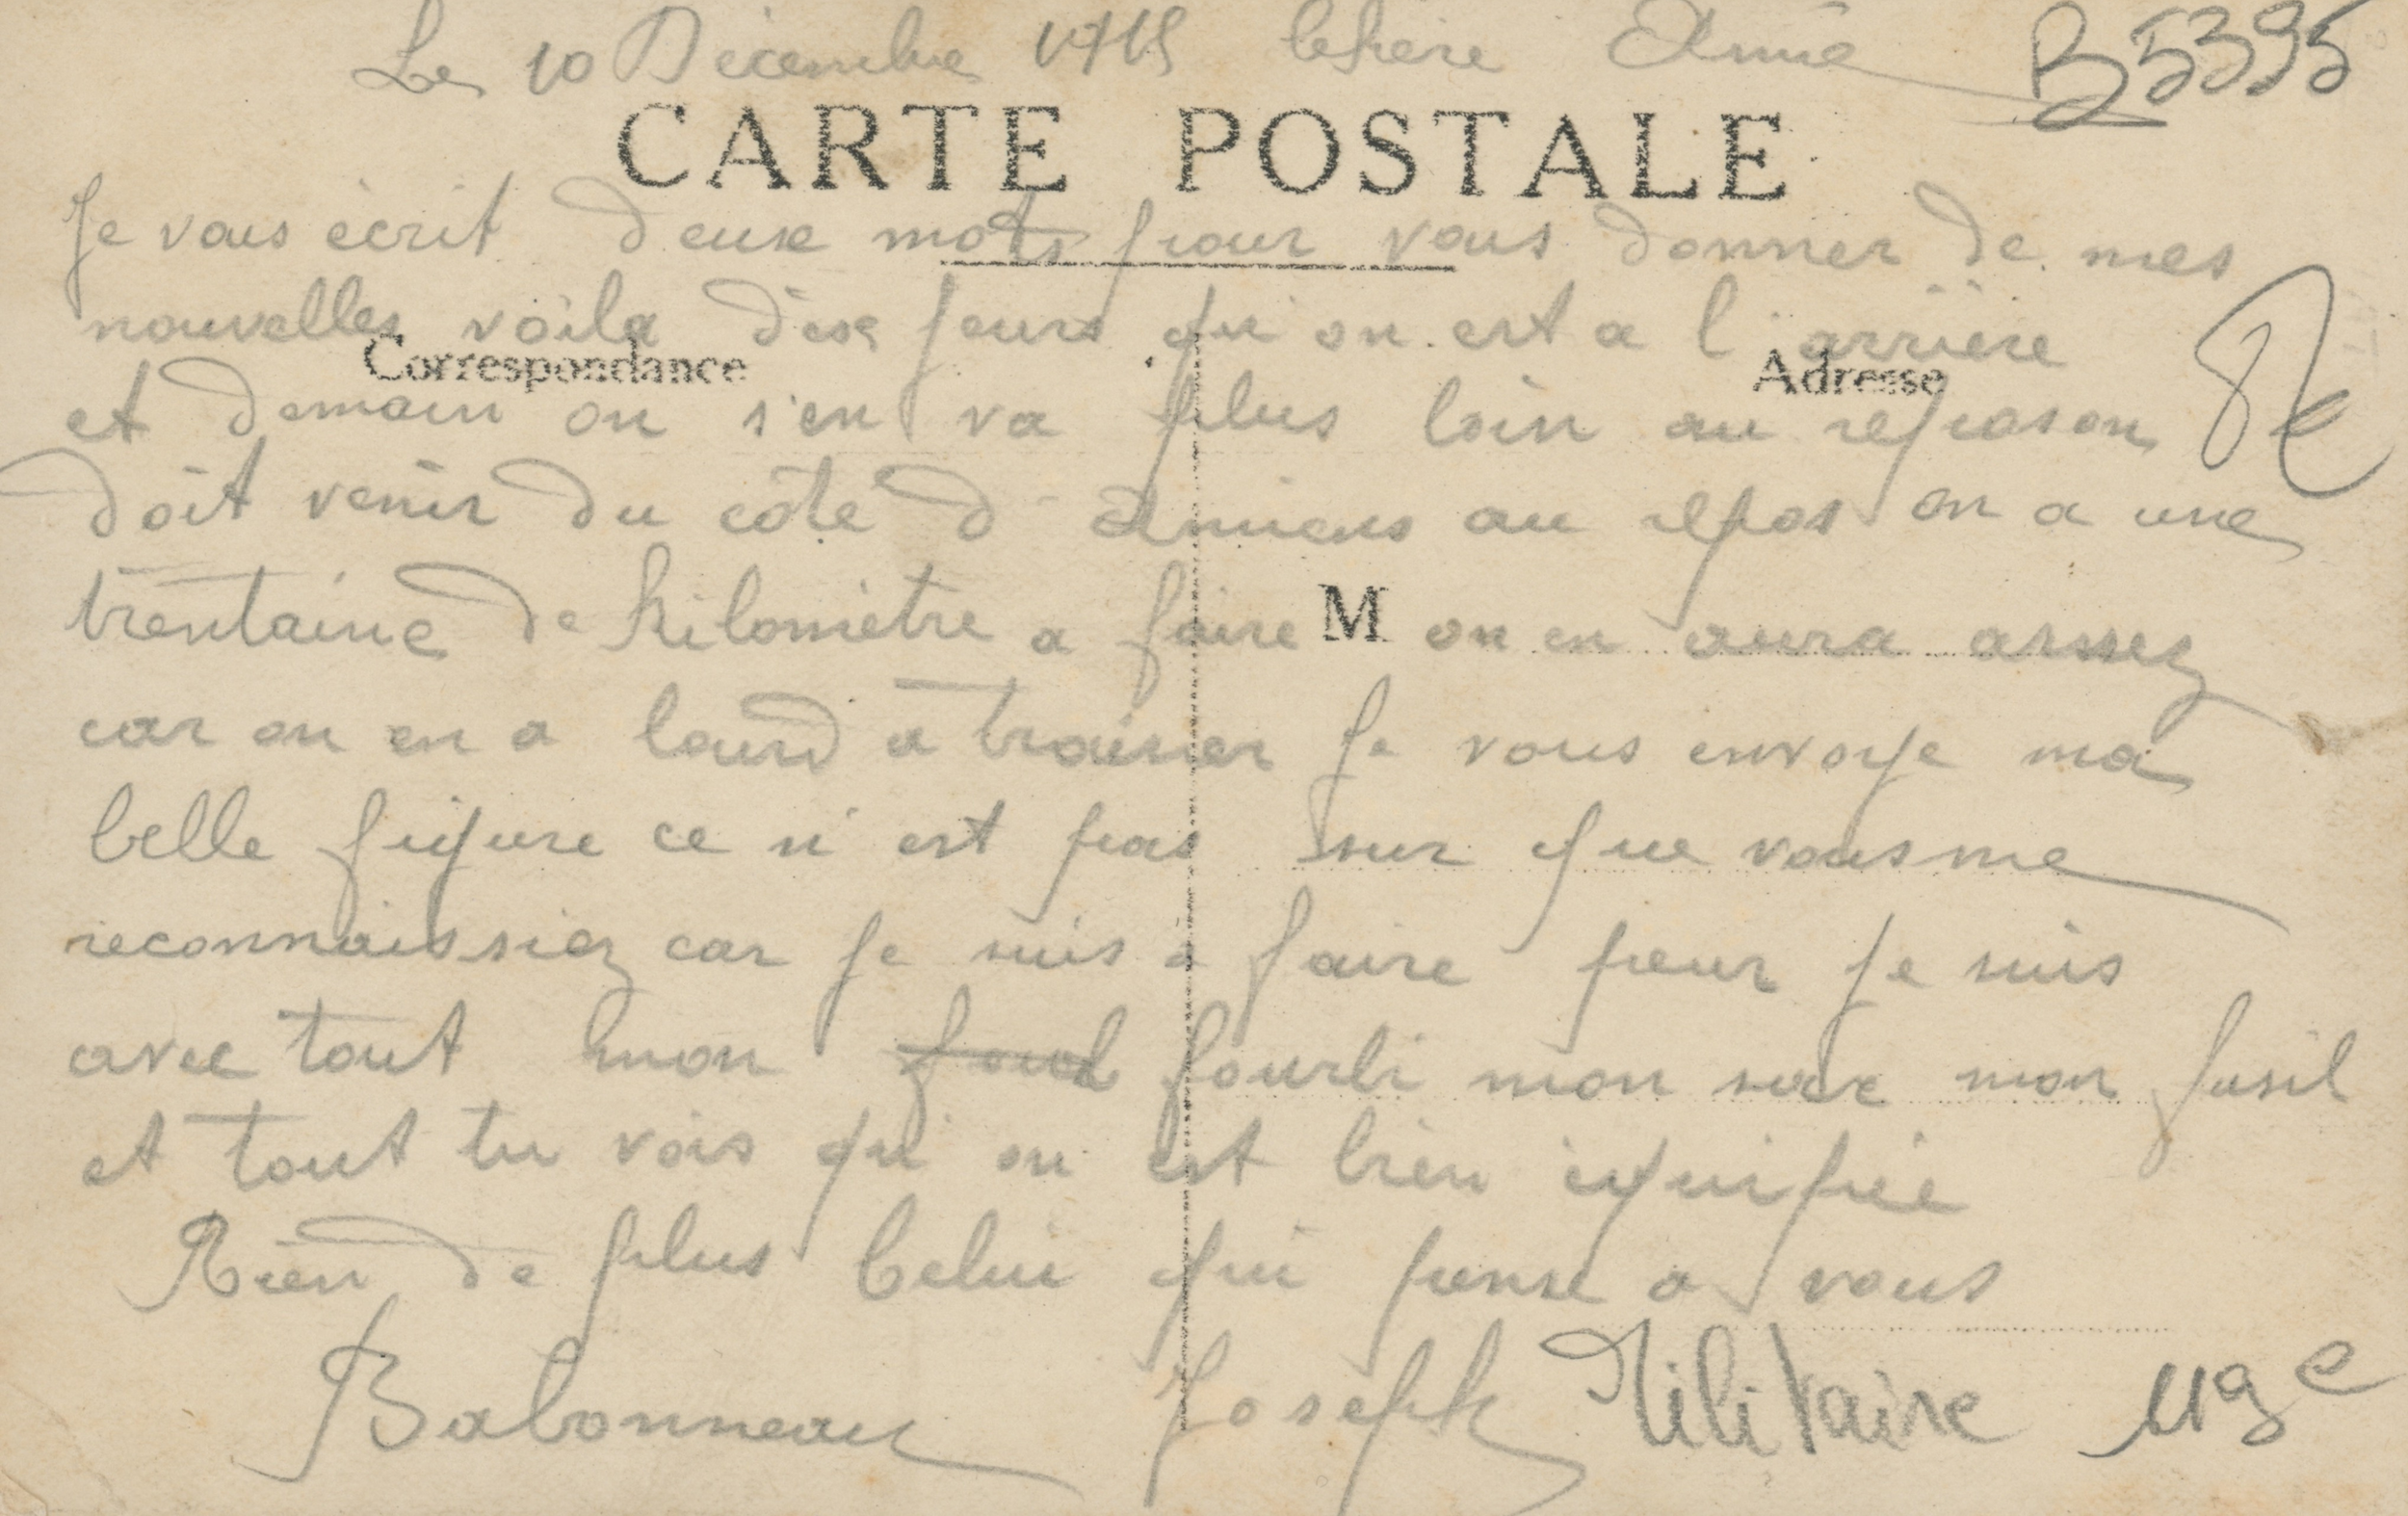 Le 10 Décembre 1915 Cher Ami
B5395
CARTE POSTALE
Je vous écrit deux mots pour vous donner de mes
nouvelles voila dix jours qu'on est a l'arrière
Correspondance
Adresse
et demain on s'en va plus loin au repos on
doit venir du côté d'Amiens au repos on a une
trentaine de kilomètre a faire on en aura assez
M
car on en a lourd a trainer Je vous envoye ma
belle figure ce n'est pas sur que vous me
reconnaissiez car je suis a faire peur je suis
avec tout mon fourbi mon sac mon fusil
et tout tu vois qu'on est bien équipée
Rien de plus Celui qui pense a vous
Babonneau Joseph Militaire 119e